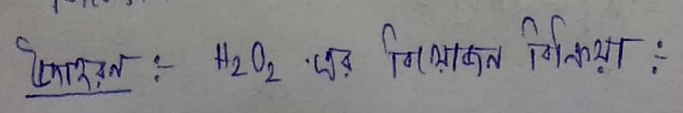 উদাহরন :- H₂O₂ এর বিয়োজন বিক্রিয়া :